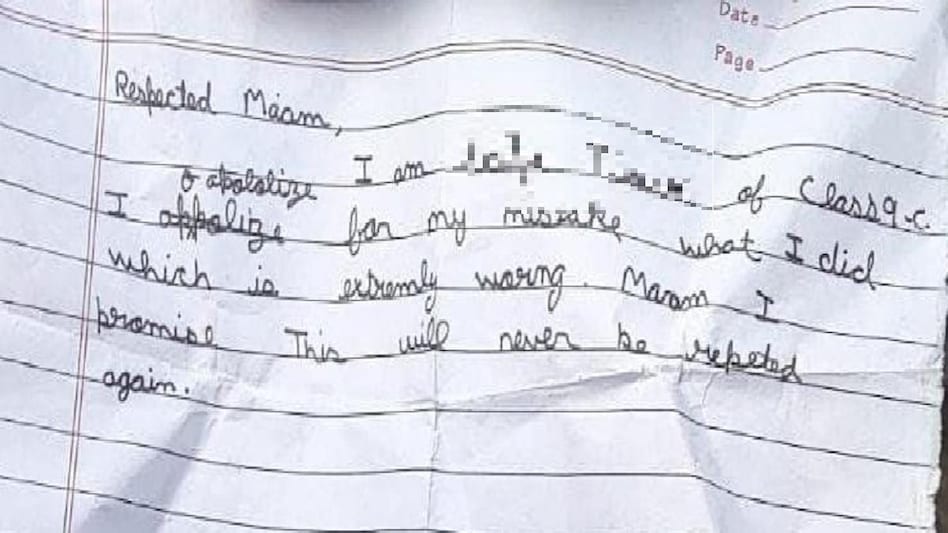 Date
Page
Respected Maam,
I am of Class 9-C.
apololize
I appolize for my mistake what I did
which is extremly worng. Maam I
promise This will never be repeted
again.